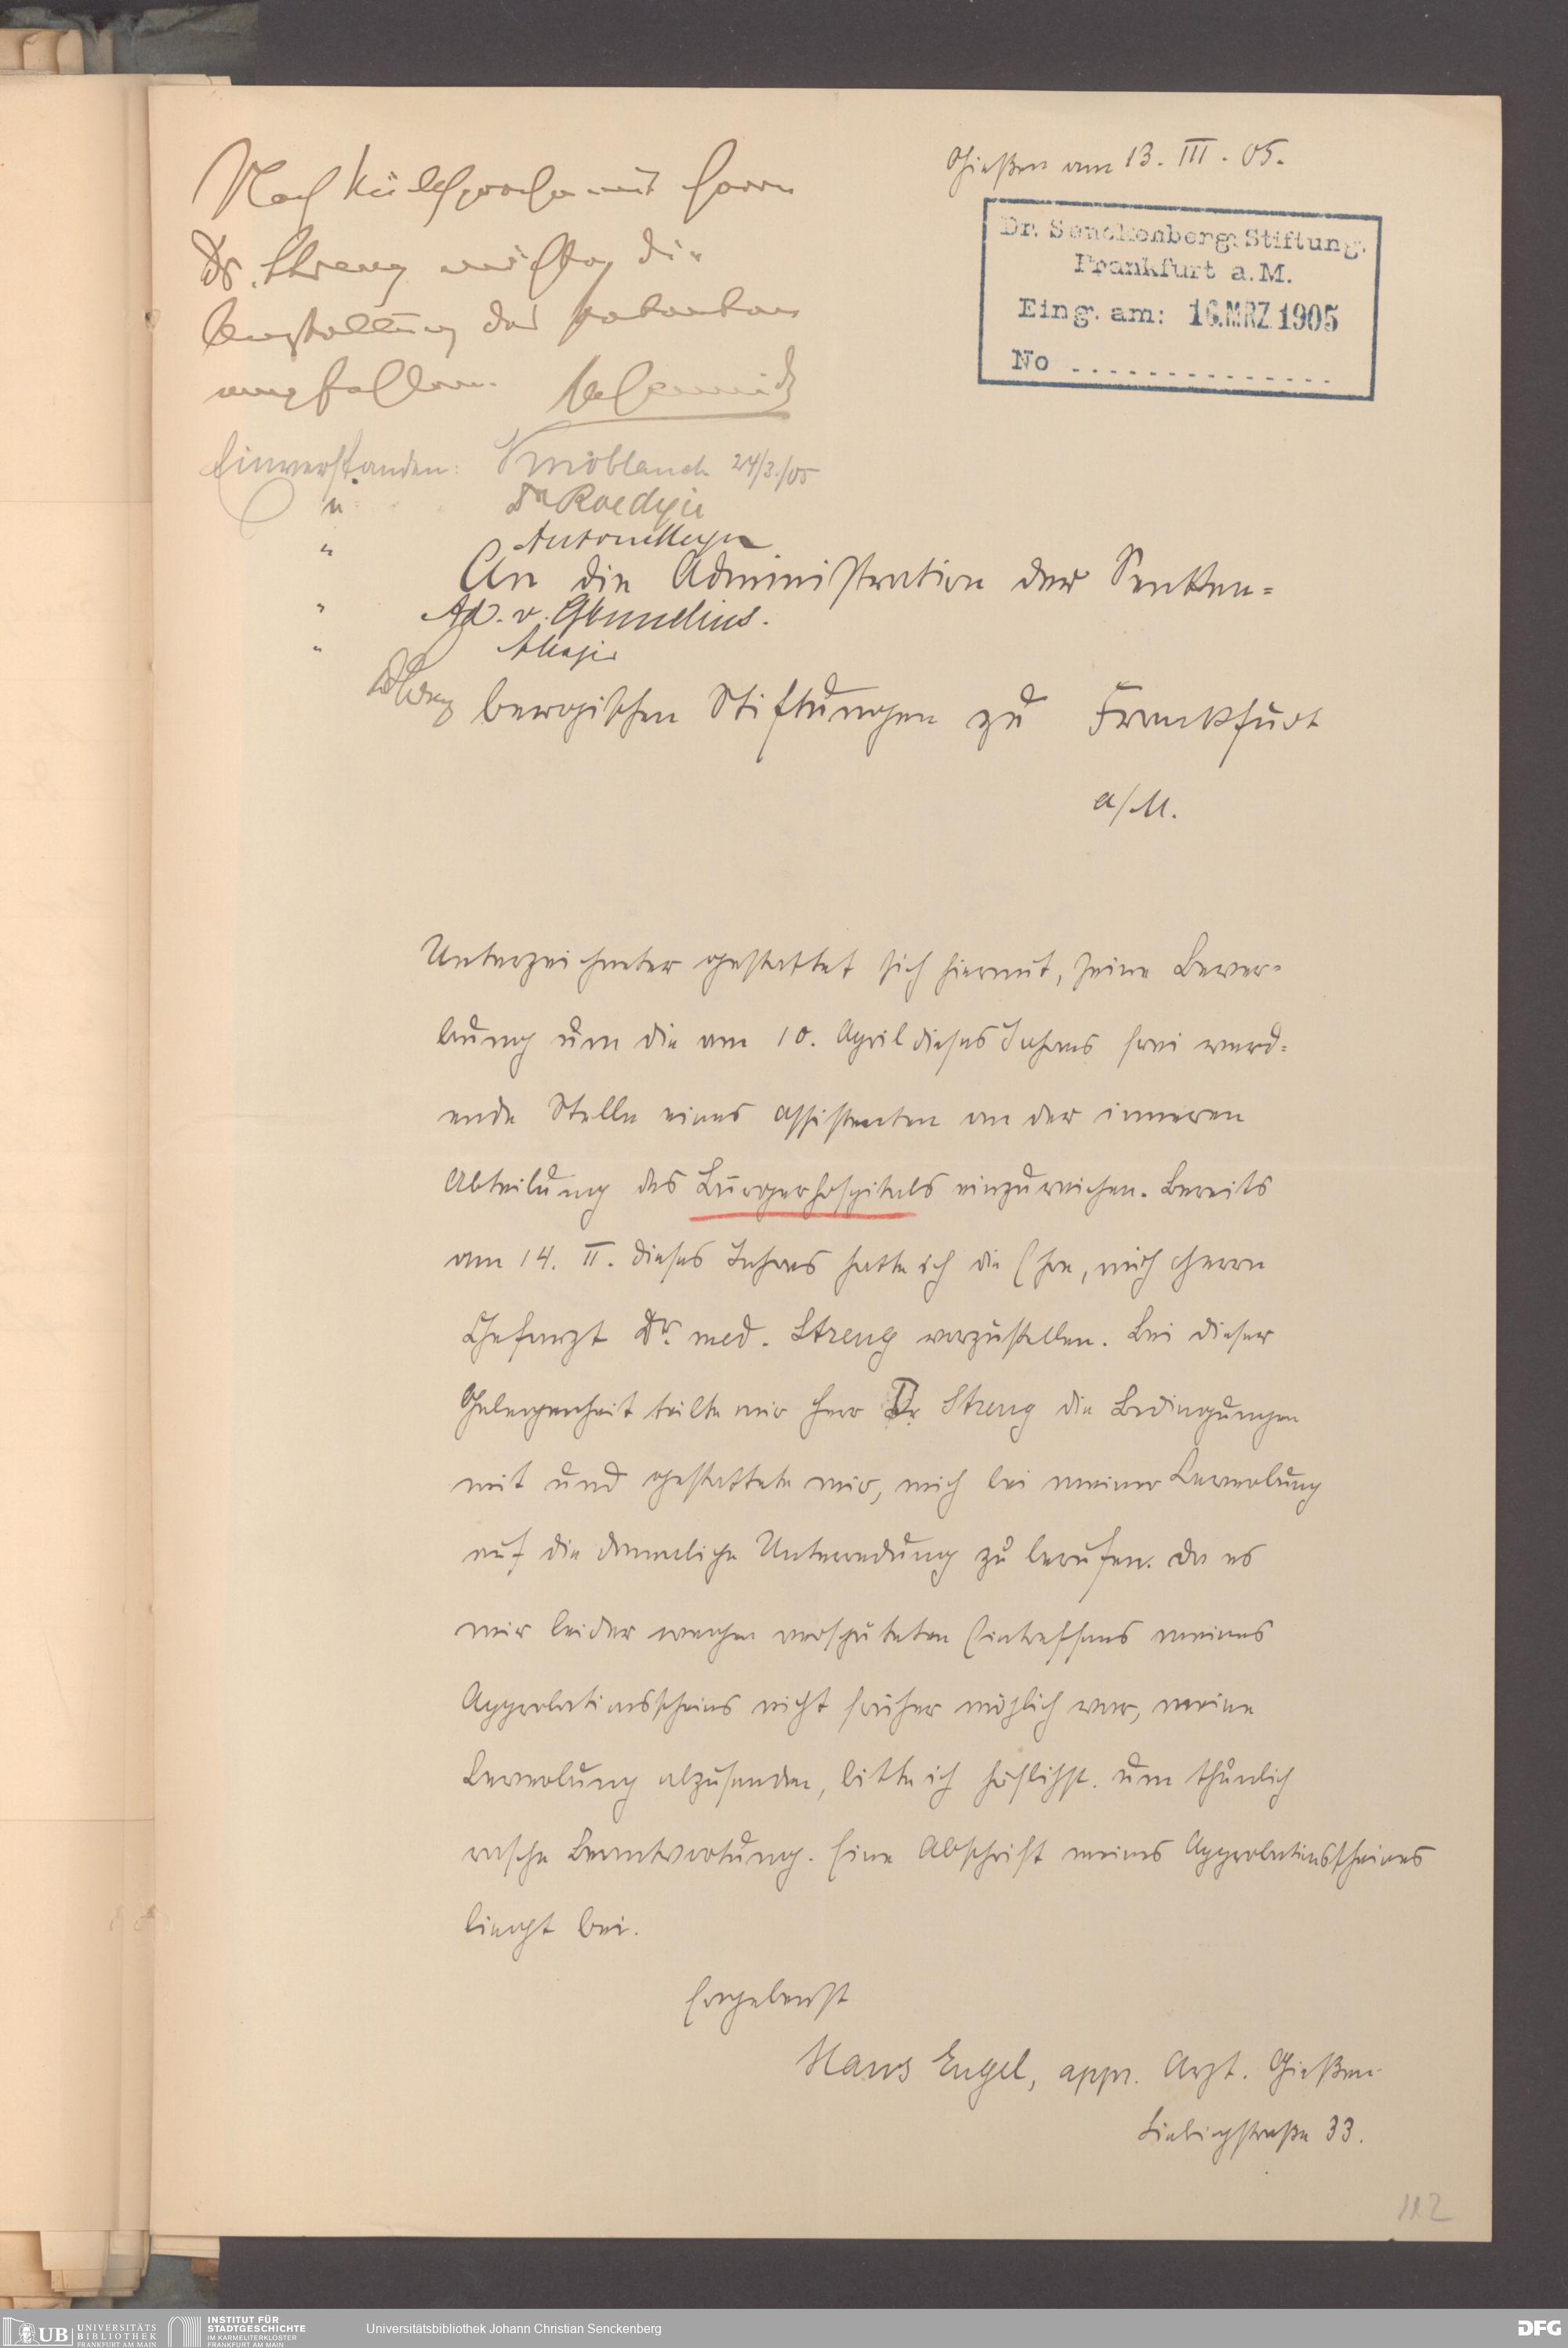 Gießen am 13. III. 05.
Dr. Senckenberg. Stiftung.
Frankfurt a. M.
Eing. am: 16. MRZ. 1905
No
Nach Rücksprache mit Herrn
Dr. Streng möchte ich die
Anstellung des Petenten
empfehlen.
Einverstanden: Knoblauch 24/3./05
" Dr Roediger
" Anton Meyer
An die Administration der Senken-
" Ad. v. 
"
bergischen Stiftungen zu Frankfurt
a/M.
Unterzeichneter gestattet sich hiermit, seine Bewer-
bung um die am 10. April dieses Jahres frei werd-
ende Stelle eines Assistenten an der inneren
Abteilung des Bürgerhospitals einzureichen. Bereits
am 14. II. dieses Jahres hatte ich die Ehre, mich Herrn
Chefarzt Dr. med. Streng vorzustellen. Bei dieser
Gelegenheit teilte mir Herr Dr Streng die Bedingungen
mit und gestattete mir, mich bei meiner Bewerbung
auf die damalige Unterredung zu berufen. Da es
mir leider wegen verspäteten Eintreffens meines
Approbationsscheins nicht früher möglich war, meine
Bewerbung abzusenden, bitte ich höflichst um thunlich
rasche Beantwortung. Eine Abschrift meines Approbationsscheines
liegt bei.
Ergebenst
Hans Engel, appr. Arzt. Gießen
Liebigstraße 33.
112
UB UNIVERSITÄTS
BIBLIOTHEK
FRANKFURT AM MAIN
INSTITUT FÜR
STADTGESCHICHTE
IM KARMELITERKLOSTER
FRANKFURT AM MAIN
Universitätsbibliothek Johann Christian Senckenberg
DFG